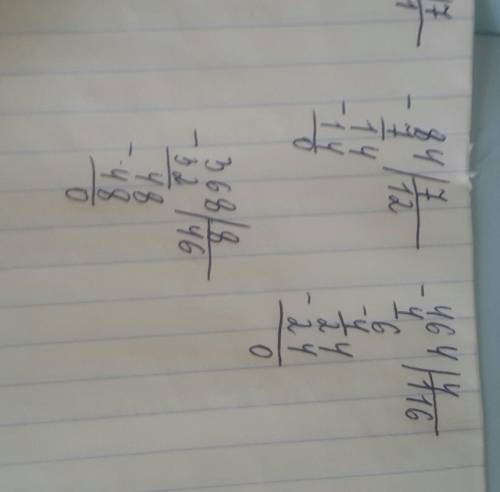 7
1
- 84 / 7
7 12
- 14
14
0
- 464 / 4
4 116
6
- 4
24
- 24
0
- 368 / 8
32 46
- 48
48
0